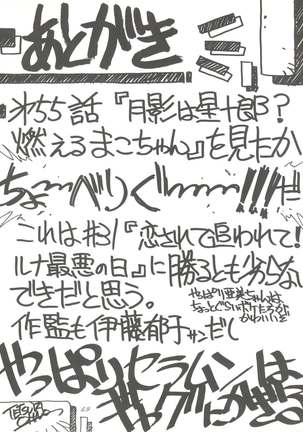 あとがき
#55話『月影は星十郎?
燃えるまこちゃん』を見たか
ちょーべりぐーーー!!!だ
これは#31『恋されて追われて!
ルナ最悪の日』に勝るとも劣らない
できだと思う。
やっぱり亜美ちゃんは
ちょっと
かわいいぞ
作監も伊藤郁子サンだし
やっぱりセラムンは
ギャグにかぎる